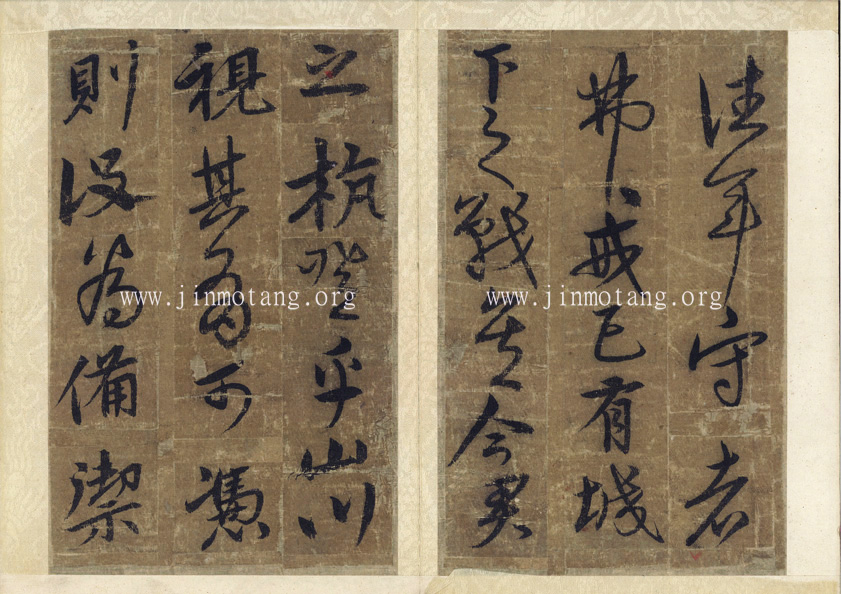 往年守者
弗戒已有城
下之戰矣今
之杭登乎山川
視其可憑
則設為備禦
www.jinmotang.org
www.jinmotang.org